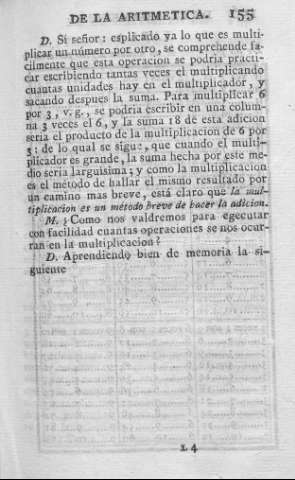 DE LA ARITMETICA. 155
D. Si señor: esplicado ya lo que es multi-
plicar un número por otro, se comprehende fa-
cilmente que esta operacion se podria practi-
car escribiendo tantas veces el multiplicando
cuantas unidades hay en el multiplicador, y
sacando despues la suma. Para multiplicar 6
por 3, v. g., se podria escribir en una colum-
na 3 veces el 6, y la suma 18 de esta adicion
seria el producto de la multiplicacion de 6 por
3: de lo qual se sigue, que cuando el multi-
plicador es grande, la suma hecha por este me-
dio seria larguisima; y como la multiplicacion
es el método de hallar el mismo resultado por
un camino mas breve, está claro que la mul-
tiplicacion es un método breve de hacer la adicion.
M. ¿Como nos valdremos para egecutar
con facilidad cuantas operaciones se nos ocur-
ran en la multiplicacion?
D. Aprendiendo bien de memoria la si-
guiente
L 4